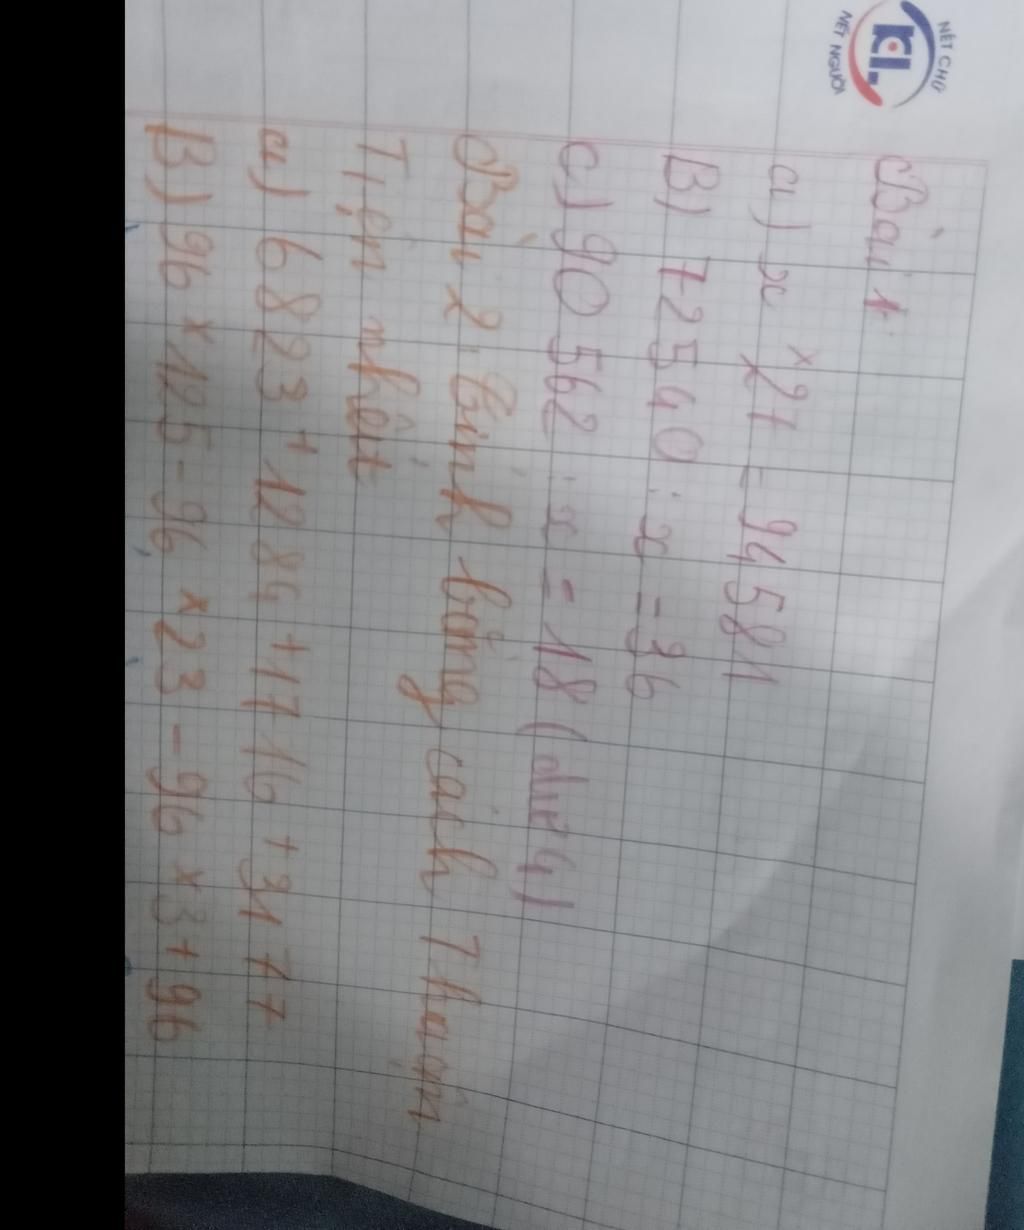 NÉT CHỮ
KL
NẾT NGƯỜI
Bài 1:
a) x × 27 = 94581
B) 72540 : x = 36
c) 90 562 : x = 18 (dư 4)
Bài 2: Tính bằng cách Thuận
Tiện nhất
a) 6823 + 1284 + 1716 + 3177
B) 96 × 125 - 96 × 23 - 96 × 3 + 96